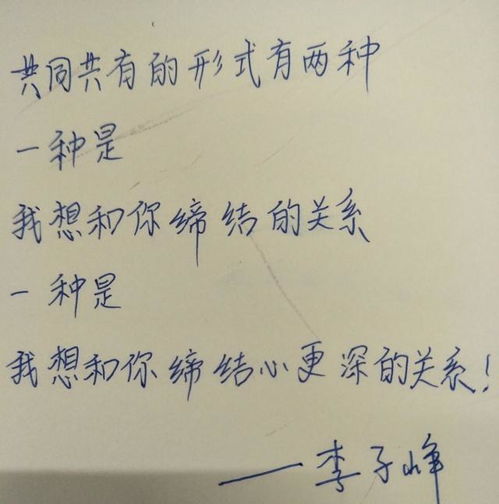 共同共有的形式有两种
一种是
我想和你缔结的关系
一种是
我想和你缔结心更深的关系！
——李子峰